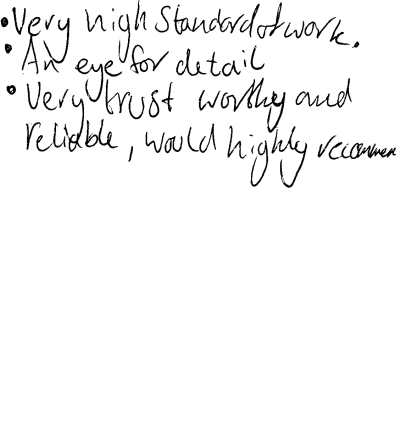 • Very high Standard of work.
• An eye for detail
• Very trust worthy and
reliable, would highly recommen